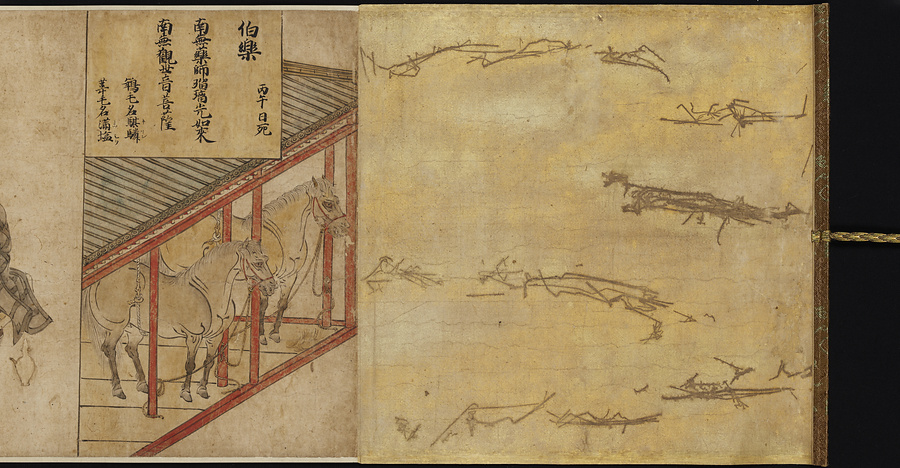 伯樂
丙午日死
南無藥師瑠璃光如來
南無觀世音菩薩
鵝毛名騏驎
葦毛名滿塩